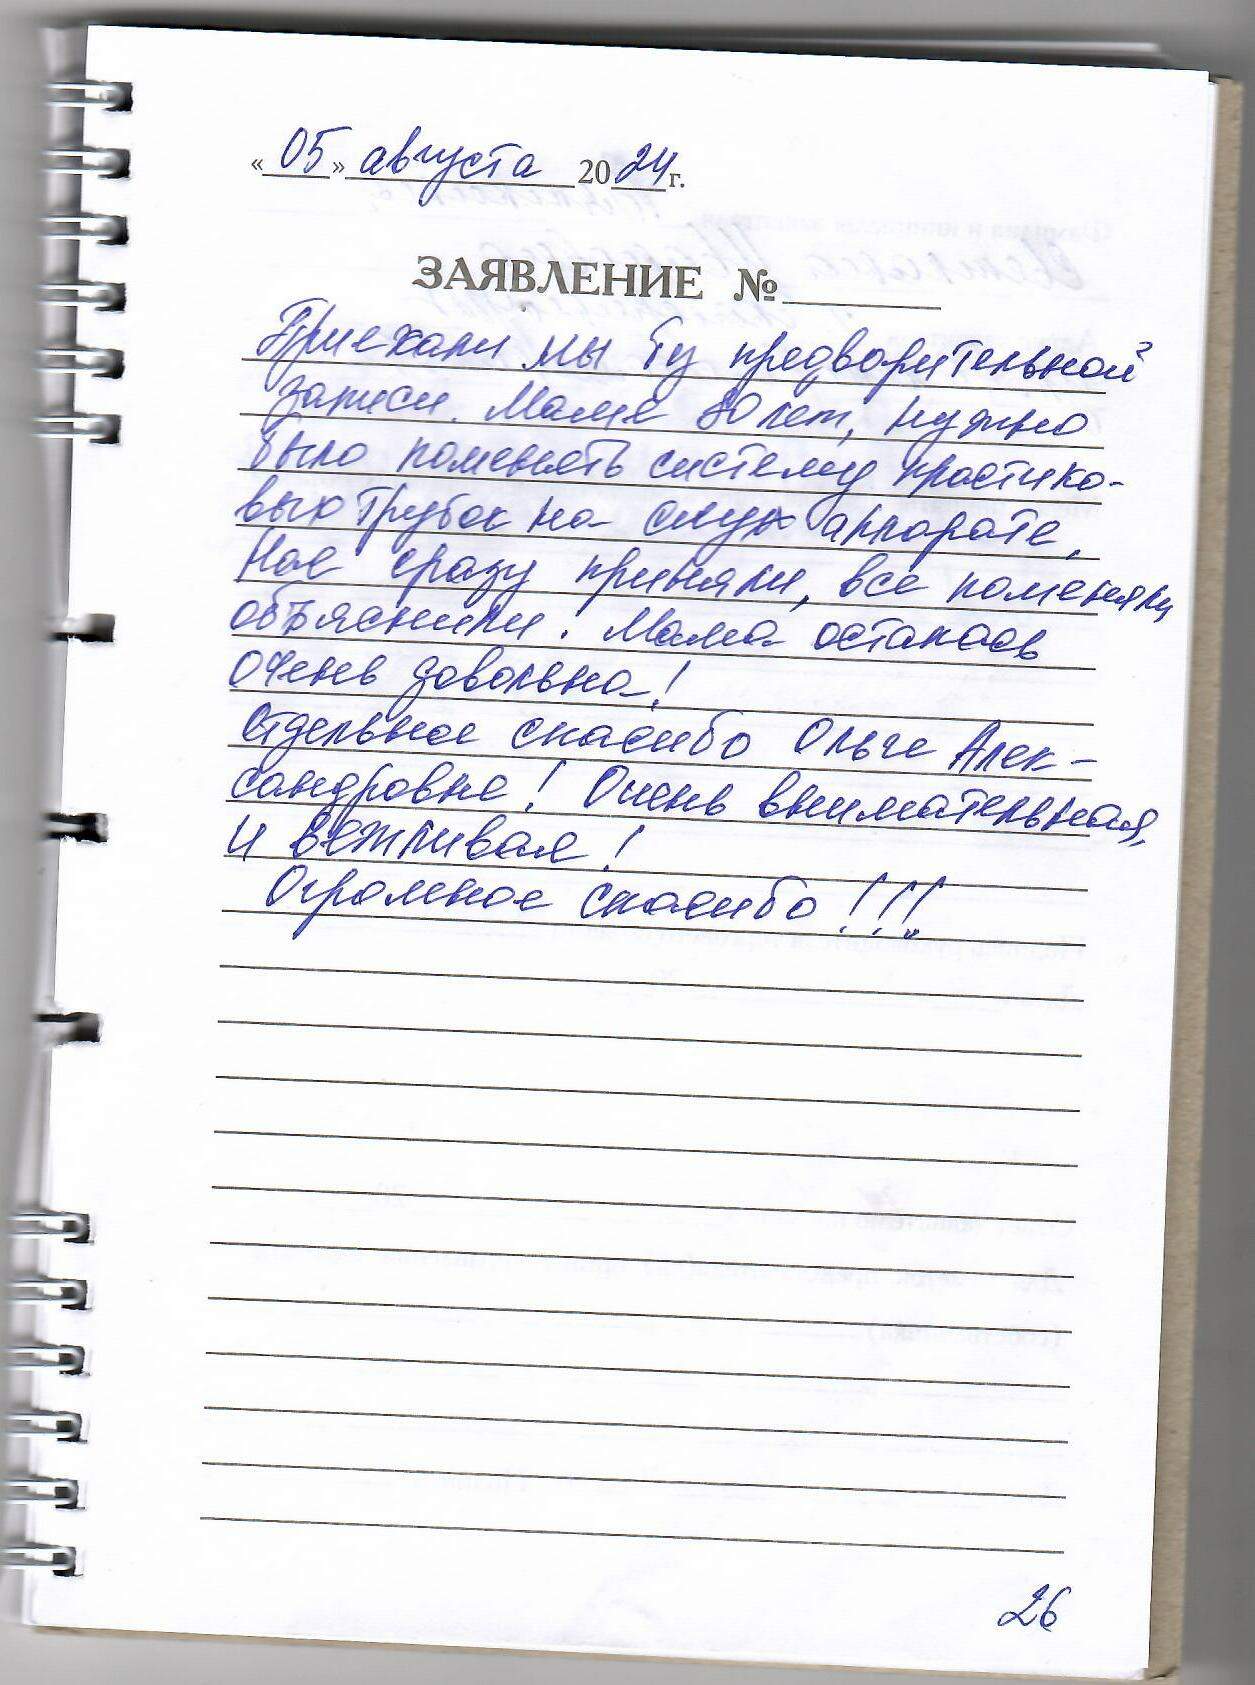 « 05 » августа 2024 г.
ЗАЯВЛЕНИЕ №
Приехали мы без предварительной
записи. Маме 80 лет, нужно
было поменять систему пластико-
вых трубок на слух аппарате.
Нас сразу приняли, все поменяли,
объяснили. Мама осталась
очень довольна!
Отдельное спасибо Ольге Алек-
сандровне! Очень внимательная,
и вежливая!
Огромное спасибо!!!
26